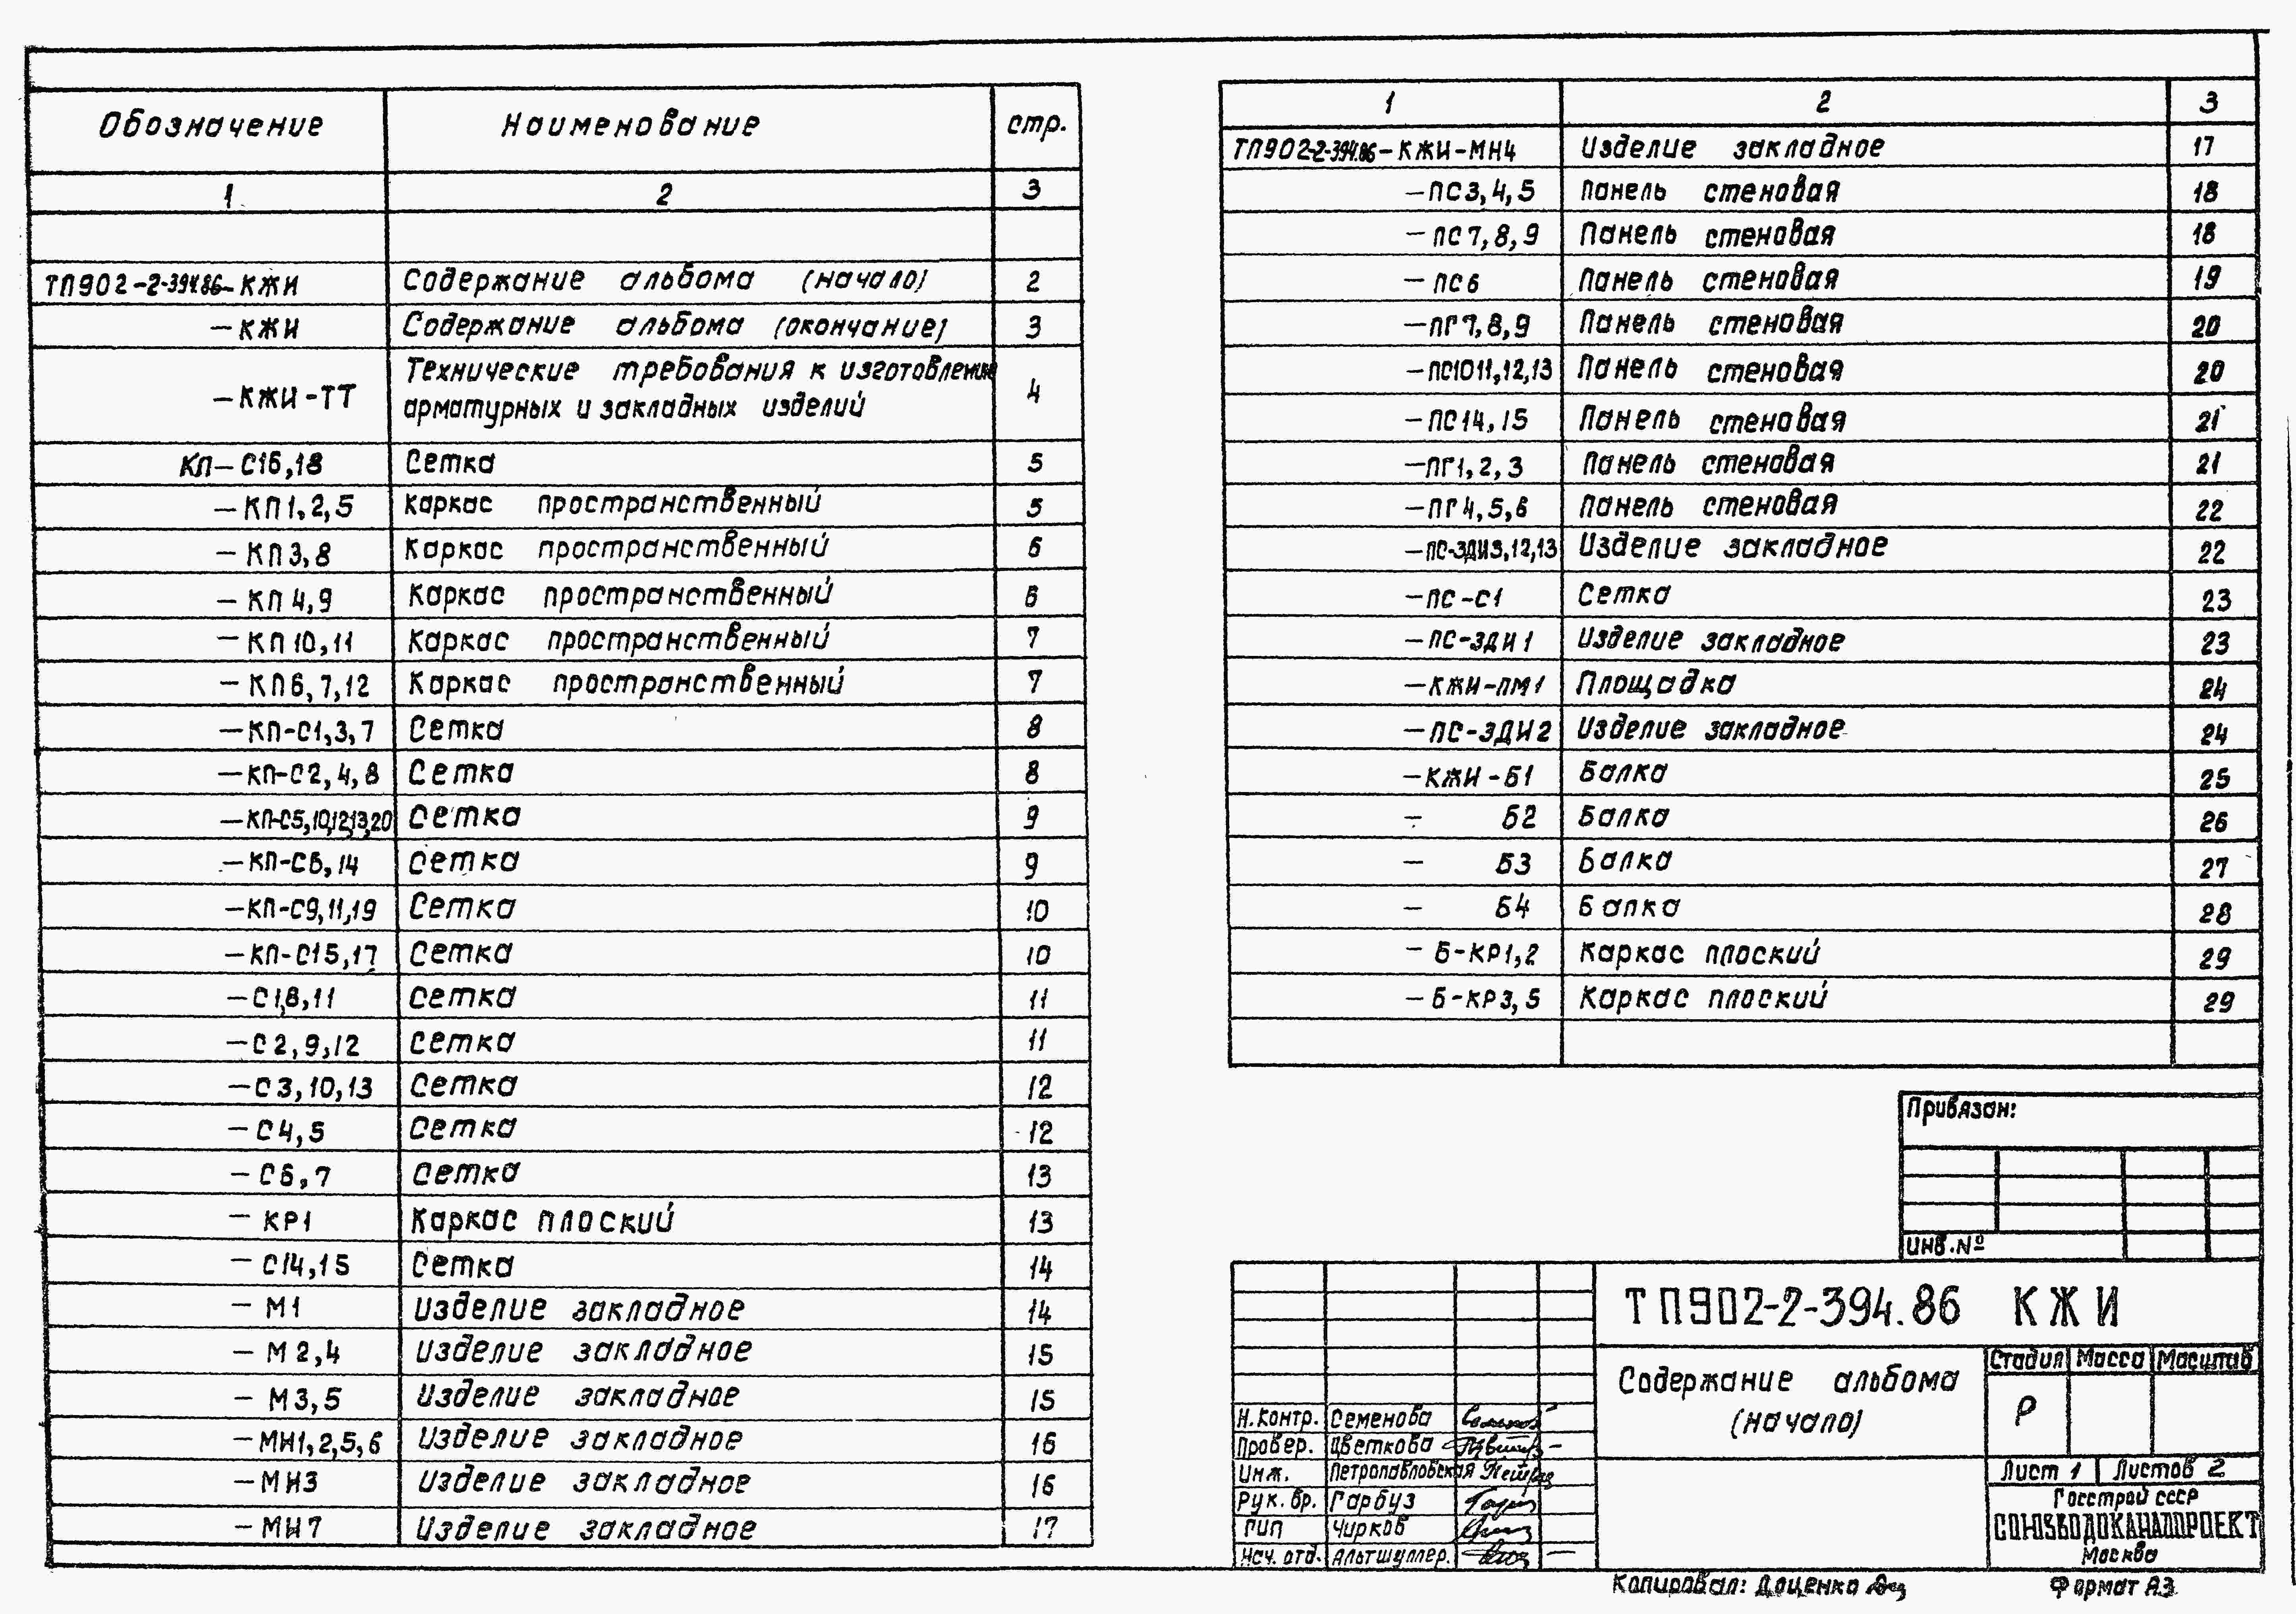 Обозначение Наименование стр.
1 2 3
ТП902-2-394.86-КЖИ Содержание альбома (начало) 2
-КЖИ Содержание альбома (окончание) 3
-КЖИ-ТТ Технические требования к изготовлению
арматурных и закладных изделий 4
КП-С16,18 Сетка 5
-КП1,2,5 Каркас пространственный 5
-КП3,8 Каркас пространственный 6
-КП4,9 Каркас пространственный 6
-КП10,11 Каркас пространственный 7
-КП6,7,12 Каркас пространственный 7
-КП-С1,3,7 Сетка 8
-КП-С2,4,8 Сетка 8
-КП-С5,10,12,13,20 Сетка 9
-КП-С6,14 Сетка 9
-КП-С9,11,19 Сетка 10
-КП-С15,17 Сетка 10
-С1,8,11 Сетка 11
-С2,9,12 Сетка 11
-С3,10,13 Сетка 12
-С4,5 Сетка 12
-С6,7 Сетка 13
-КР1 Каркас плоский 13
-С14,15 Сетка 14
-М1 Изделие закладное 14
-М2,4 Изделие закладное 15
-М3,5 Изделие закладное 15
-МН1,2,5,6 Изделие закладное 16
-МН3 Изделие закладное 16
-МН7 Изделие закладное 17
1 2 3
ТП902-2-394.86-КЖИ-МН4 Изделие закладное 17
-ПС3,4,5 Панель стеновая 18
-ПС7,8,9 Панель стеновая 18
-ПС6 Панель стеновая 19
-ПГ7,8,9 Панель стеновая 20
-ПС10,11,12,13 Панель стеновая 20
-ПС14,15 Панель стеновая 21
-ПГ1,2,3 Панель стеновая 21
-ПГ4,5,6 Панель стеновая 22
-ПС-ЗДИ3,12,13 Изделие закладное 22
-ПС-С1 Сетка 23
-ПС-ЗДИ1 Изделие закладное 23
-КЖИ-ПМ1 Площадка 24
-ПС-ЗДИ2 Изделие закладное 24
-КЖИ-Б1 Балка 25
- Б2 Балка 26
- Б3 Балка 27
- Б4 Балка 28
-Б-КР1,2 Каркас плоский 29
-Б-КР3,5 Каркас плоский 29
Привязан:
Инв.№
ТП902-2-394.86 КЖИ
Содержание альбома
(начало)
Стадия Масса Масштаб
Р
Лист 1 Листов 2
Госстрой СССР
СОЮЗВОДОКАНАЛПРОЕКТ
Москва
Н.контр. Семенова
Провер. Цветкова
Инж. Петропавловская
Рук.бр. Гарбуз
ГИП Чирков
Нач.отд. Альтшуллер.
Копировал: Доценко
Формат А3